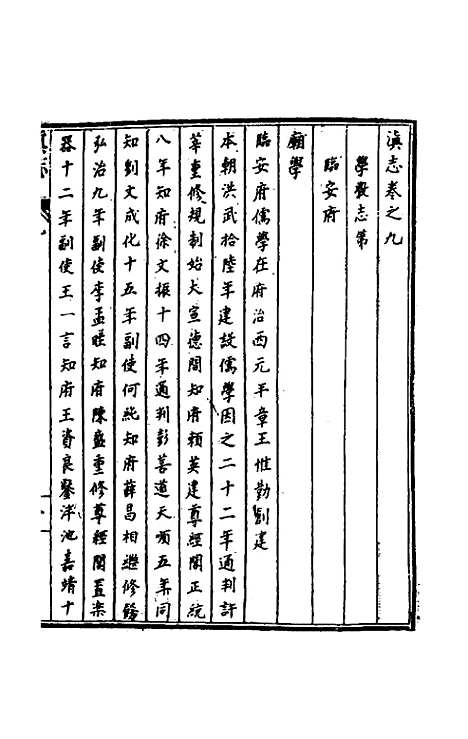 滇志卷之九
學教志第
臨安府
廟學
臨安府儒學在府治西元平章王惟勤剏建
本朝洪武拾陸年建設儒學因之二十二年通判許
莘重修規制始大宣德間知府賴英建尊經閣正統
八年知府徐文振十四年通判彭善道天順五年同
知劉文成化十五年副使何純知府薛昌相繼修餙
弘治九年副使李孟晊知府陳盛重修尊經閣置樂
器十二年副使王一言知府王資良鑿泮池嘉靖十